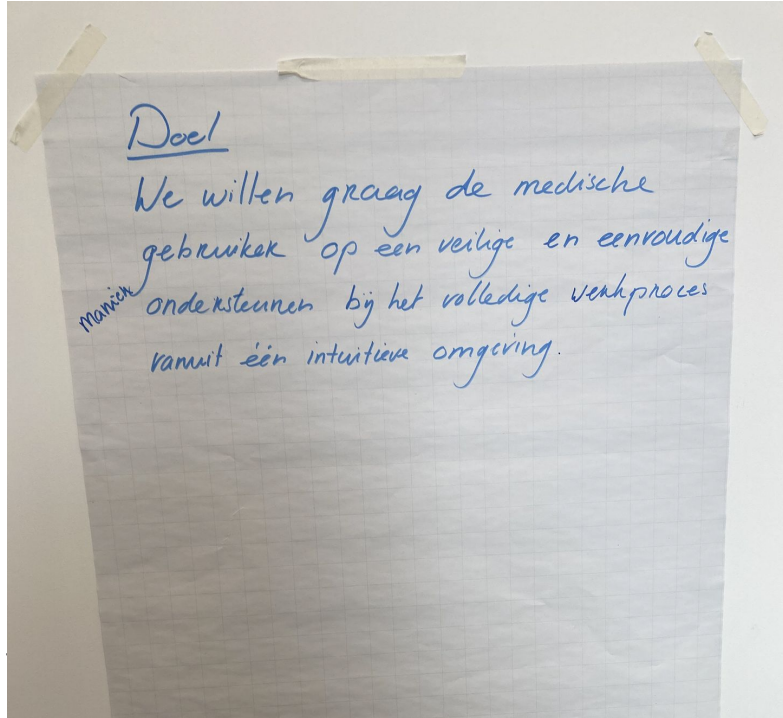 Doel
We willen graag de medische
gebruiker op een veilige en eenvoudige
manier ondersteunen bij het volledige werkproces
vanuit één intuitieve omgeving.